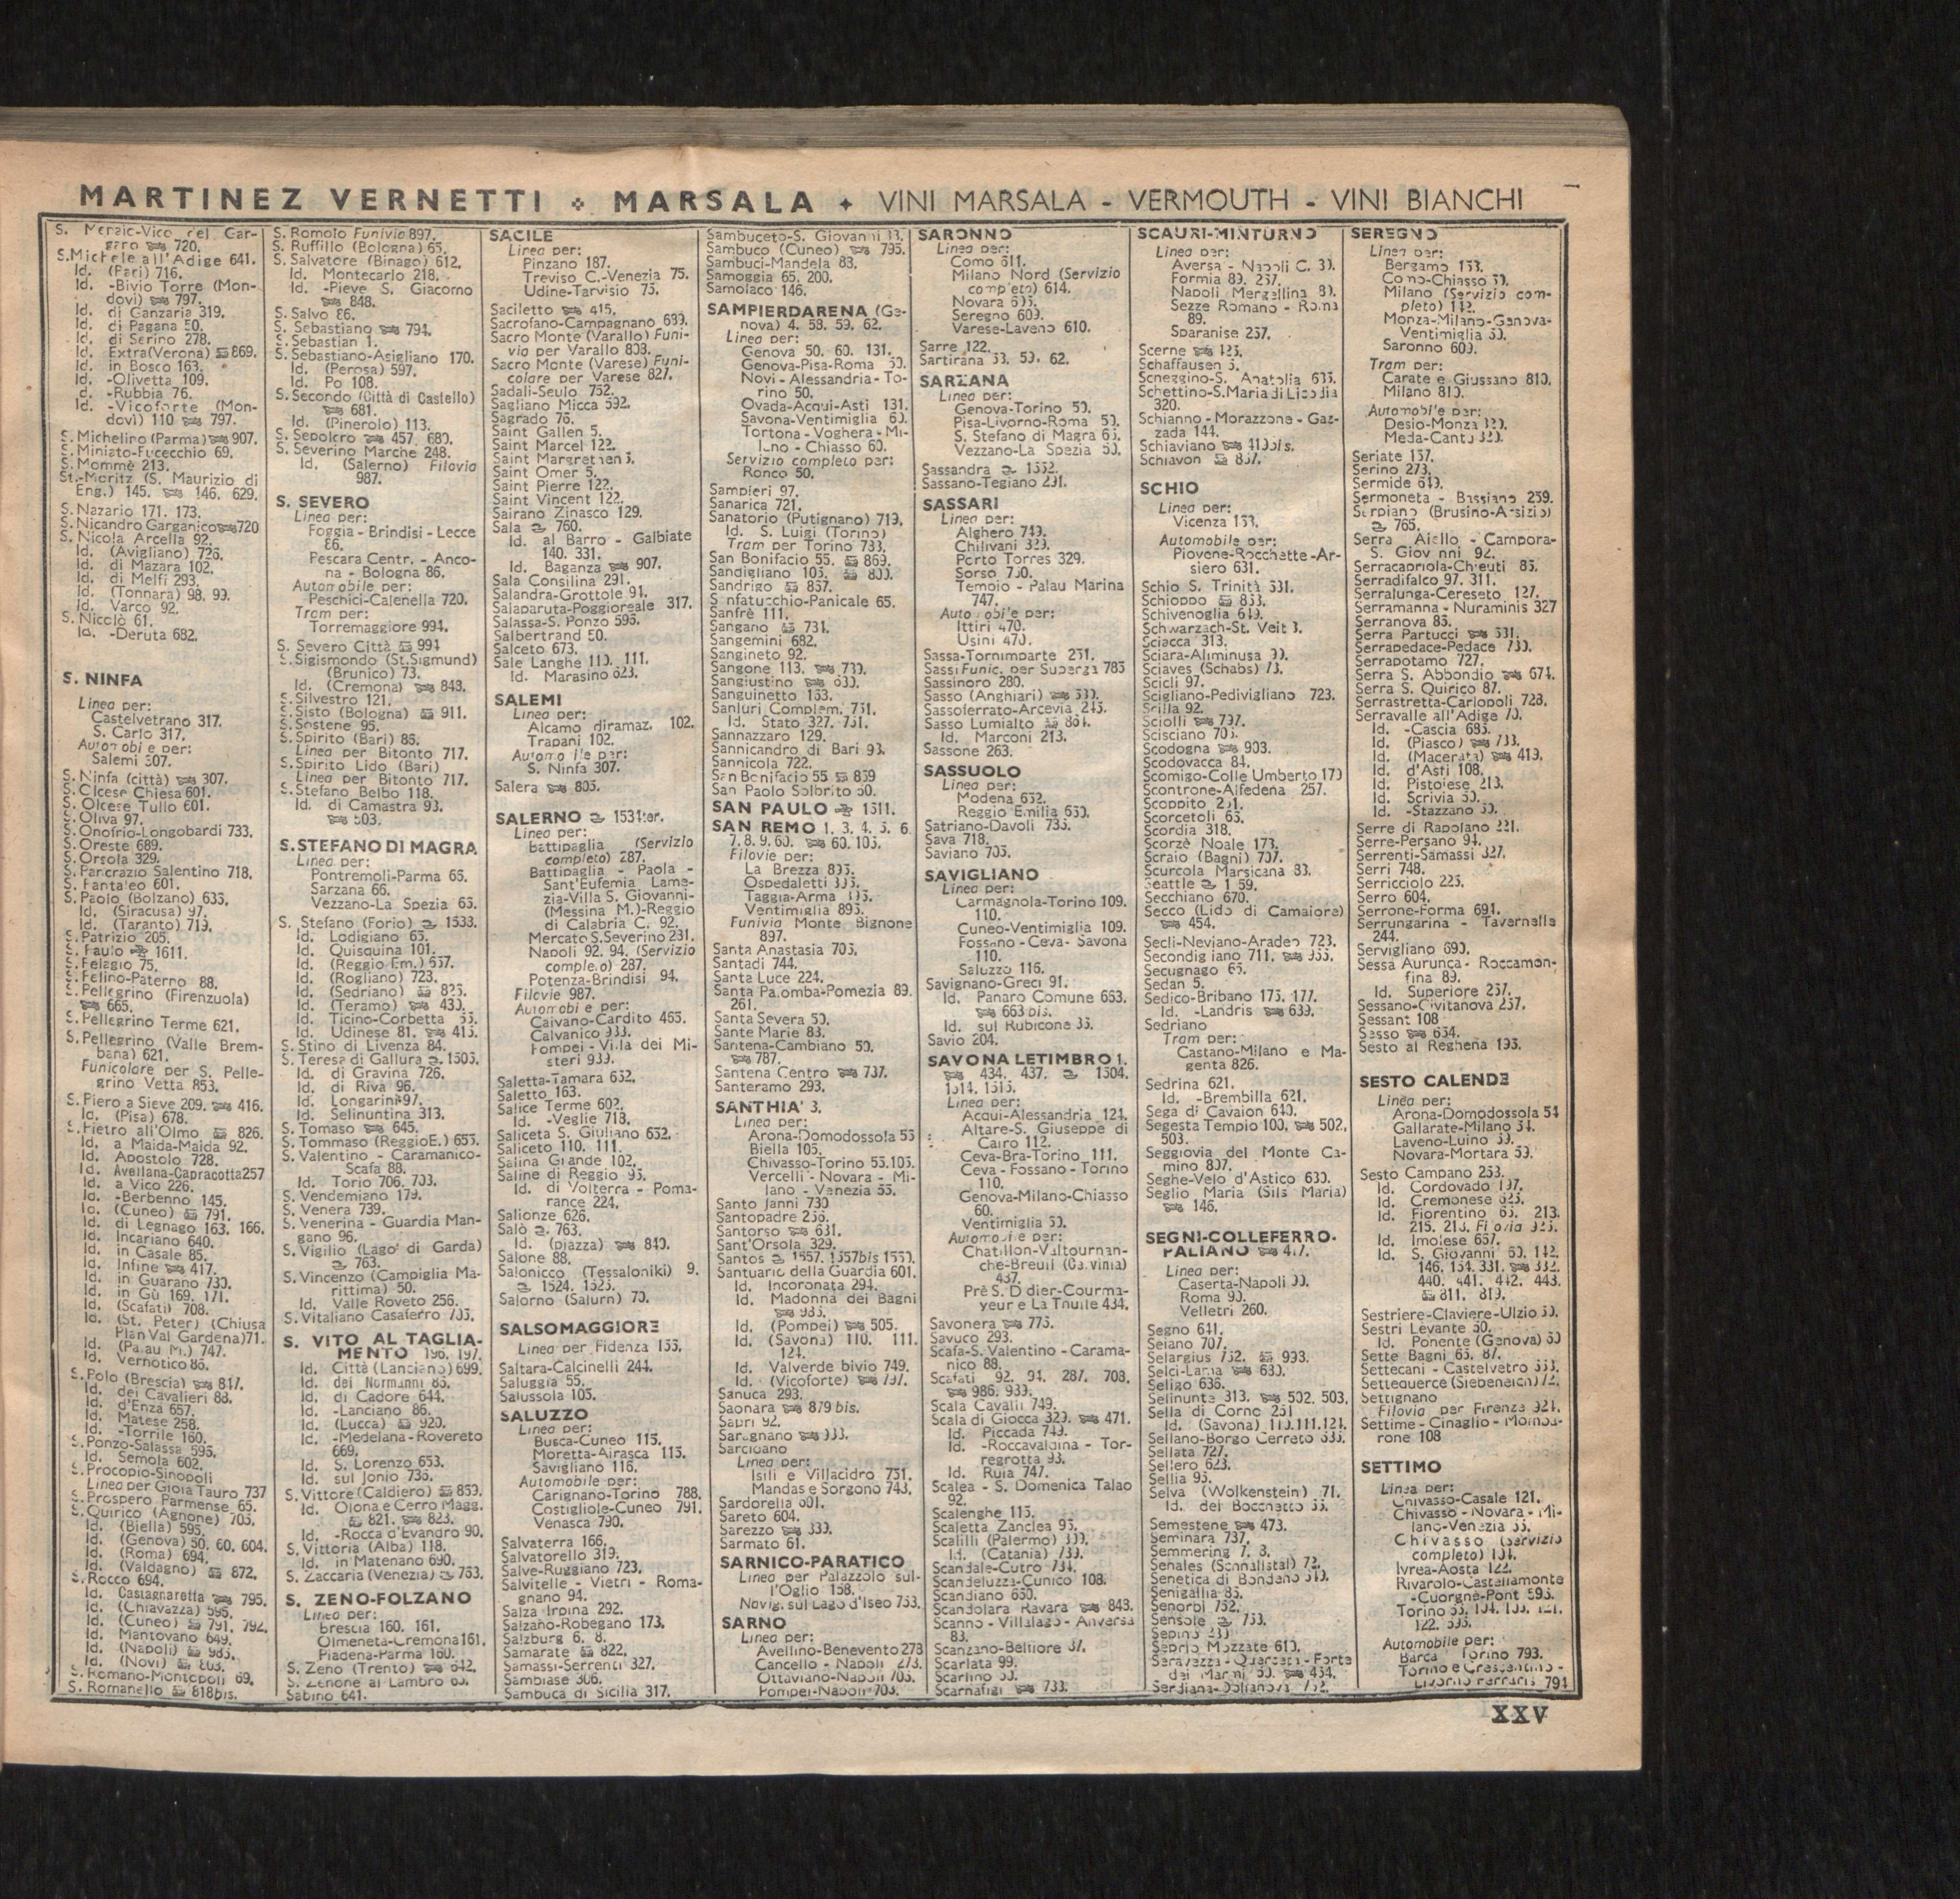 MARTINEZ VERNETTI MARSALA VINI MARSALA - VERMOUTH - VINI BIANCHI
720.
S.Michele all'Adige 641.
Id. (Bari) 716.
Id. -Bivio Torre (Mon-
dovì) 797.
Id. di Ganzaria 319.
Id. di Pagana 50.
Id. di Serino 278.
Id. Extra(Verona) 869.
Id. in Bosco 163.
-Olivetta 109.
-Rubbia 76.
Id. -Vicoforte (Mon-
dovì) 110 797.
S. Michelino (Parma) 907.
S. Miniato-Fucecchio 69.
S. Mommè 213.
St.-Moritz (S. Maurizio di
Eng.) 145. 146. 629.
S. Nazario 171. 173.
S. Nicandro Garganico 720
S. Nicola Arcella 92.
Id. (Avigliano) 726.
Id. di Mazara 102.
Id. di Melfi 293.
Id. (Tonnara) 98. 99.
Id. Varco 92.
S. Nicolò 61.
Id. -Deruta 682.
S. NINFA
Linea per:
Castelvetrano 317.
S. Carlo 317.
Salemi 307.
S. Ninfa (città) 307.
Chiesa 601.
S. Olcese Tullo 601.
S. Oliva 97.
S. Onofrio-Longobardi 733.
S. Oreste 689.
S. Orsola 329.
S. Pancrazio Salentino 718.
S. Pantaleo 601.
S. Paolo (Bolzano) 635.
Id. (Siracusa) 97.
Id. (Taranto) 719.
S. Patrizio 205.
S. Paulo 1611.
S. Pelagio 75.
S. Felino-Paterno 88.
S. Pellegrino (Firenzuola)
665.
S. Pellegrino Terme 621.
S. Pellegrino (Valle Brem-
bana) 621.
Funicolare per S. Pelle-
grino Vetta 853.
S. Piero a Sieve 209. 416.
Id. (Pisa) 678.
S. Pietro all'Olmo 826.
Id. a Maida-Maida 92.
Id. Apostolo 728.
Id. Avellana-Capracotta257
Id. a Vico 226.
Id. -Berbenno 145.
Id. (Cuneo) 791.
Id. di Legnago 163. 166.
Id. Incariano 640.
Id. in Casale 85.
Id. Infine 417.
Id. in Guarano 730.
Id. in Gù 169. 171.
Id. (Scafati) 708.
Id. (St. Peter) (Chiusa
Plan Val Gardena)71.
Id. (Palau M.) 747.
Id. Vernotico 86.
S. Polo (Brescia) 817.
Id. dei Cavalieri 88.
Id. d'Enza 657.
Id. Matese 258.
Id. -Torrile 160.
S. Ponzo-Salassa 595.
Id. Semola 602.
S. Procopio-Sinopoli
Linea per Gioia Tauro 737
S. Prospero Parmense 65.
S. Quirico (Agnone) 705.
Id. (Biella) 595.
Id. (Genova) 50. 60. 604.
Id. (Roma) 694.
Id. (Valdagno) 872.
S. Rocco 694.
Id. Castagnaretta 795.
Id. (Chiavazza) 595.
Id. (Cuneo) 791. 792.
Id. Mantovano 649.
Id. (Napoli) 985.
Id. (Novi)
S. Romano-Montopoli 69.
S. Romanello 818bis.
S. Romolo Funivia 897.
S. Ruffillo (Bologna) 65.
S. Salvatore (Binago) 612.
Id. Montecarlo 218.
Id. -Pieve S. Giacomo
848.
S. Salvo 86.
S. Sebastiano 794.
S. Sebastian 1.
S. Sebastiano-Asigliano 170.
Id. (Perosa) 597.
Id. Po 108.
S. Secondo (Città di Castello)
681.
Id. (Pinerolo) 113.
S. Sepolcro 457. 680.
S. Severino Marche 248.
Id. (Salerno) Filovia
987.
S. SEVERO
Linea per:
Foggia - Brindisi - Lecce
86.
Pescara Centr. - Anco-
na - Bologna 86.
Automobile per:
Peschici-Calenella 720.
Tram per:
Torremaggiore 994.
S. Severo Città 994
S.Sigismondo (St.Sigmund)
(Brunico) 73.
Id. (Cremona) 848.
S. Silvestro 121.
S. Sisto (Bologna) 911.
S. Sostene 95.
S. Spirito (Bari) 86.
Linea per Bitonto 717.
S. Spirito Lido (Bari)
Linea per Bitonto 717.
S. Stefano Belbo 118.
Id. di Camastra 93.
503.
S.STEFANO DI MAGRA
Linea per:
Pontremoli-Parma 66.
Sarzana 66.
Vezzano-La Spezia 66.
S. Stefano (Forio) 1533.
Id. Lodigiano 65.
Id. Quisquina 101.
Id. (Reggio Em.) 657.
Id. (Rogliano) 723.
Id. (Sedriano) 825.
Id. (Teramo) 433.
Id. Ticino-Corbetta 55.
Id. Udinese 81. 415.
S. Stino di Livenza 84.
S. Teresa di Gallura 1505.
Id. di Gravina 726.
Id. di Riva 96.
Id. Longarini 97.
Id. Selinuntina 313.
S. Tomaso 645.
S. Tommaso (ReggioE.) 655.
S. Valentino - Caramanico-
Scafa 88.
Id. Torio 706. 703.
S. Vendemiano 179.
S. Venera 739.
S. Venerina - Guardia Man-
gano 96.
S. Vigilio (Lago di Garda)
763.
S. Vincenzo (Campiglia Ma-
rittima) 50.
Id. Valle Roveto 256.
S. Vitaliano Casaferro 705.
S. VITO AL TAGLIA-
MENTO 196. 197.
Id. Città (Lanciano) 699.
Id. dei Normanni 86.
Id. di Cadore 644.
Id. -Lanciano 86.
Id. (Lucca) 920.
Id. -Medelana-Rovereto
669.
Id. S. Lorenzo 653.
Id. sul Jonio 736.
S. Vittore (Caldiero) 859.
Id. Olona e Cerro Magg.
821. 823.
Id. -Rocca d'Evandro 90.
S. Vittoria (Alba) 118.
Id. in Matenano 690.
S. Zaccaria (Venezia) 753.
S. ZENO-FOLZANO
Linea per:
Brescia 160. 161.
Olmeneta-Cremona161.
Piadena-Parma 160.
S. Zeno (Trento) 642.
S. Zenone al Lambro 65.
Sabino 641.
SACILE
Linea per:
Pinzano 187.
Treviso C.-Venezia 75.
Udine-Tarvisio 75.
Saciletto 415.
Sacrofano-Campagnano 689.
Sacro Monte (Varallo) Funi-
via per Varallo 803.
Sacro Monte (Varese) Funi-
colare per Varese 827.
Sadali-Seulo 752.
Sagliano Micca 592.
Sagrado 76.
Saint Gallen 5.
Saint Marcel 122.
Saint Margrethen 5.
Saint Omer 5.
Saint Pierre 122.
Saint Vincent 122.
Sairano Zinasco 129.
Sala 760.
Id. al Barro - Galbiate
140. 331.
Id. Baganza 907.
Sala Consilina 291.
Salandra-Grottole 91.
Salaparuta-Poggioreale 317.
Salassa-S. Ponzo 595.
Salbertrand 50.
Salceto 673.
Sale Langhe 110. 111.
Id. Marasino 623.
SALEMI
Linea per:
Alcamo diramaz. 102.
Trapani 102.
S. Ninfa 307.
Salera 805.
SALERNO 1531ter.
Linea per:
Battipaglia (Servizio
completo) 287.
Battipaglia - Paola -
Sant'Eufemia Lame-
zia-Villa S. Giovanni-
(Messina M.)-Reggio
di Calabria C. 92.
Mercato S.Severino 291.
Napoli 92. 94. (Servizio
completo) 287.
Potenza-Brindisi 94.
Filovie 987.
Automobile per:
Caivano-Cardito 465.
Calvanico 933.
Pompei - Villa dei Mi-
steri 939.
Saletta-Tamara 652.
Saletto 163.
Salice Terme 602.
Id. -Veglie 718.
Saliceta S. Giuliano 652.
Saliceto 110. 111.
Salina Grande 102.
Saline di Reggio 95.
Id. di Volterra - Poma-
rance 224.
Salionze 626.
Salò 763.
Id. (piazza) 840.
Salone 88.
Salonicco (Tessaloniki) 9.
1524. 1525.
Salorno (Salurn) 70.
SALSOMAGGIORE
Linea per Fidenza 155.
Saltara-Calcinelli 244.
Saluggia 55.
Salussola 105.
SALUZZO
Linea per:
Busca-Cuneo 115.
Moretta-Airasca 115.
Savigliano 116.
Automobile per:
Carignano-Torino 788.
Costigliole-Cuneo 791.
Venasca 790.
Salvaterra 166.
Salvatorello 319.
Salve-Ruggiano 723.
Salvitelle - Vietri - Roma-
gnano 94.
Salza Irpina 292.
Salzano-Robegano 173.
Salzburg 6. 8.
Samarate 822.
Samassi-Serrenti 327.
Sambiase 306.
Sambuca di Sicilia 317.
Sambuceto-S. Giovanni
Sambuco (Cuneo) 795.
Sambuci-Mandela 83.
Samoggia 65. 200.
Samolaco 146.
SAMPIERDARENA (Ge-
nova) 4. 58. 59. 62.
Linea per:
Genova 50. 60. 131.
Genova-Pisa-Roma 50.
Novi - Alessandria - To-
rino 50.
Ovada-Acqui-Asti 131.
Savona-Ventimiglia 60.
Tortona - Voghera - Mi-
lano - Chiasso 60.
Servizio completo per:
Ronco 50.
Sampieri 97.
Sanarica 721.
Sanatorio (Putignano) 719.
Id. S. Luigi (Torino)
Tram per Torino 733.
San Bonifacio 55. 869.
Sandigliano 105. 800.
Sandrigo 857.
Sanfatucchio-Panicale 65.
Sanfrè 111.
Sangano 731.
Sangemini 682.
Sangineto 92.
Sangone 113. 730.
Sangiustino 680.
Sanguinetto 163.
Sanluri Complem. 751.
Id. Stato 327. 751.
Sannazzaro 129.
Sannicandro di Bari 93.
Sannicola 722.
San Bonifacio 55 859
San Paolo Solbrito 50.
SAN PAULO 1611.
SAN REMO 1. 3. 4. 5. 6.
7. 8. 9. 60. 60. 105.
Filovie per:
La Brezza 895.
Ospedaletti 895.
Taggia-Arma 895.
Ventimiglia 895.
Funivia Monte Bignone
897.
Santa Anastasia 705.
Santadi 744.
Santa Luce 224.
Santa Palomba-Pomezia 89.
261.
Santa Severa 50.
Sante Marie 83.
Santena-Cambiano 50.
787.
Santena Centro 737.
Santeramo 293.
SANTHIA' 3.
Linea per:
Arona-Domodossola 55
Biella 105.
Chivasso-Torino 55.105.
Vercelli - Novara - Mi-
lano - Venezia 55.
Santo Janni 730
Santopadre 256.
Santorso 631.
Sant'Orsola 329.
Santos 1557. 1557bis 1550.
Santuario della Guardia 601.
Id. Incoronata 294.
Id. Madonna dei Bagni
985.
Id. (Pompei) 505.
Id. (Savona) 110. 111.
124.
Id. Valverde bivio 749.
Id. (Vicoforte) 797.
Sanuca 293.
Saonara 879 bis.
Sapri 92.
Saragnano 933.
Sarcidano
Linea per:
Isili e Villacidro 751.
Mandas e Sorgono 743.
Sardorella 601.
Sareto 604.
Sarezzo 839.
Sarmato 61.
SARNICO-PARATICO
Linea per Palazzolo sul-
l'Oglio 158.
Navig. sul Lago d'Iseo 753.
SARNO
Linea per:
Avellino-Benevento 278
Cancello - Napoli 278.
Ottaviano-Napoli 705.
Pompei-Napoli 705.
SARONNO
Linea per:
Como 611.
Milano Nord (Servizio
completo) 614.
Novara 605.
Seregno 609.
Varese-Laveno 610.
Sarre 122.
Sartirana 53. 59. 62.
SARZANA
Linea per:
Genova-Torino 50.
Pisa-Livorno-Roma 50.
S. Stefano di Magra 66.
Vezzano-La Spezia 50.
Sassandra 1552.
Sassano-Tegiano 291.
SASSARI
Linea per:
Alghero 749.
Chilivani 329.
Porto Torres 329.
Sorso 750.
Tempio - Palau Marina
747.
Ittiri 470.
Usini 470.
Sassa-Tornimparte 251.
Sassi Funic. per Superga 785
Sassinoro 280.
Sasso (Anghiari) 680.
Sassoferrato-Arcevia 245.
Sasso Lumialto 864.
Id. Marconi 213.
Sassone 263.
SASSUOLO
Linea per:
Modena 652.
Reggio Emilia 650.
Satriano-Davoli 735.
Sava 718.
Saviano 705.
SAVIGLIANO
Linea per:
Carmagnola-Torino 109.
110.
Cuneo-Ventimiglia 109.
Fossano - Ceva - Savona
110.
Saluzzo 116.
Savignano-Greci 91.
Id. Panaro Comune 663.
663 bis.
Id. sul Rubicone 86.
Savio 204.
SAVONA LETIMBRO 1.
434. 437. 1504.
1514. 1515.
Linea per:
Acqui-Alessandria 124.
Altare-S. Giuseppe di
Cairo 112.
Ceva-Bra-Torino 111.
Ceva - Fossano - Torino
110.
Genova-Milano-Chiasso
60.
Ventimiglia 60.
Automobile per:
Chatillon-Valtournan-
che-Breuil (Cervinia)
437.
Prè S. Didier-Courma-
yeur e La Thuile 434.
Savonera 775.
Savuco 293.
Scafa-S. Valentino - Carama-
nico 88.
Scafati 92. 94. 287. 708.
986. 939.
Scala Cavalli 749.
Scala di Giocca 329. 471.
Id. Piccada 749.
Id. -Roccavaldina - Tor-
regrotta 93.
Id. Ruia 747.
Scalea - S. Domenica Talao
92.
Scalenghe 115.
Scaletta Zanclea 95.
Scalilli (Palermo)
Id. (Catania) 739.
Scandale-Cutro 734.
Scandeluzza-Cunico 108.
Scandiano 650.
Scandolara Ravara 843.
Scanno - Villalago - Anversa
83.
Scanzano-Belfiore 87.
Scarlata 99.
Scarlino 50.
Scarnafigi 733.
SCAURI-MINTURNO
Linea per:
Aversa - Napoli C. 89.
Formia 89. 257.
Napoli Mergellina 89.
Sezze Romano - Roma
89.
Sparanise 257.
Scerne 425.
Schaffausen 5.
Scheggino-S. Anatolia 685.
Schettino-S.Maria di Licodia
320.
Schianno - Morazzone - Gaz-
zada 144.
Schiaviano 410bis.
Schiavon 857.
SCHIO
Linea per:
Vicenza 168.
Automobile per:
Piovene-Rocchette-Ar-
siero 631.
Schio S. Trinità 631.
Schioppo 853.
Schivenoglia 649.
Schwarzach-St. Veit 8.
Sciacca 313.
Sciara-Aliminusa 99.
Sciaves (Schabs) 73.
Scicli 97.
Scigliano-Pedivigliano 723.
Scilla 92.
Sciolli 797.
Scisciano 705.
Scodogna 903.
Scodovacca 84.
Scomigo-Colle Umberto 179
Scontrone-Alfedena 257.
Scoppito 251.
Scorcetoli 66.
Scordia 318.
Scorzè Noale 173.
Scraio (Bagni) 707.
Scurcola Marsicana 83.
Seattle
Secchiano 670.
Secco (Lido di Camaiore)
454.
Seclì-Neviano-Aradeo 723.
Secondigliano 711. 935.
Secugnago 65.
Sedan 5.
Sedico-Bribano 175. 177.
Id. -Landris 639.
Sedriano
Tram per:
Castano-Milano e Ma-
genta 826.
Sedrina 621.
Id. -Brembilla 621.
Sega di Cavaion 640.
Segesta Tempio 100. 502.
503.
Seggiovia del Monte Ca-
mino 807.
Seghe-Velo d'Astico 630.
Seglio Maria (Sils Maria)
146.
SEGNI-COLLEFERRO-
PALIANO 417.
Linea per:
Caserta-Napoli 90.
Roma 90.
Velletri 260.
Segno 641.
Seiano 707.
Selargius 752. 993.
Selci-Lama 680.
Seligo 636.
Selinunte 313. 502. 503.
Sella di Corno 251
Id. (Savona) 110.111.124.
Sellano-Borgo Cerreto 685.
Sellata 727.
Sellero 623.
Sellia 95.
Selva (Wolkenstein) 71.
Id. del Bocchetto 66.
Semestene 473.
Seminara 737.
Semmering 7. 8.
Senales (Schnalstal) 72.
Senetica di Bondeno 649.
Senigallia 86.
Senorbì 752.
Sensole 753.
Sepino
Seprio Mozzate 610.
Seravezza - Querceta - Forte
dei Marmi 50. 454.
Serdiana-Dolianova 752.
SEREGNO
Linea per:
Bergamo 153.
Como-Chiasso 50.
Milano (Servizio com-
pleto) 142.
Monza-Milano-Genova-
Ventimiglia 50.
Saronno 609.
Tram per:
Carate e Giussano 810.
Milano 810.
Automobile per:
Desio-Monza
Meda-Cantù
Seriate 157.
Serino 273.
Sermide 649.
Sermoneta - Bassiano 259.
Serpiano (Brusino-Arsizio)
765.
Serra Aiello - Campora-
S. Giovanni 92.
Serracapriola-Chieuti 86.
Serradifalco 97. 311.
Serralunga-Cereseto 127.
Serramanna - Nuraminis 327
Serranova 86.
Serra Partucci 681.
Serrapedace-Pedace 730.
Serrapotamo 727.
Serra S. Abbondio 674.
Serra S. Quirico 87.
Serrastretta-Carlopoli 728.
Serravalle all'Adige 70.
Id. -Cascia 685.
Id. (Piasco) 733.
Id. (Macerata) 419.
Id. d'Asti 108.
Id. Pistoiese 213.
Id. Scrivia 50.
Id. -Stazzano 50.
Serre di Rapolano 221.
Serre-Persano 94.
Serrenti-Samassi 327.
Serri 748.
Serricciolo 225.
Serro 604.
Serrone-Forma 691.
Serrungarina - Tavernalla
244.
Servigliano 690.
Sessa Aurunca - Roccamon-
fina 89.
Id. Superiore 257.
Sessano-Civitanova 257.
Sessant 108
Sesso 654.
Sesto al Reghena 196.
SESTO CALENDE
Linea per:
Arona-Domodossola 54
Gallarate-Milano 54.
Laveno-Luino 59.
Novara-Mortara 59.
Sesto Campano 253.
Id. Cordovado 197.
Id. Cremonese 623.
Id. Fiorentino 65. 213.
215. 218. Filovia 925.
Id. Imolese 657.
Id. S. Giovanni 60. 142.
146. 154. 331. 332.
440. 441. 442. 443.
811. 819.
Sestriere-Claviere-Ulzio 50.
Sestri Levante 50.
Id. Ponente (Genova) 60
Sette Bagni 65. 87.
Settecani - Castelvetro 653.
Settequerce (Siebeneich) 72.
Settignano
Filovia per Firenze 924.
Settime - Cinaglio - Momba-
rone 108
SETTIMO
Linea per:
Chivasso-Casale 121.
Chivasso - Novara - Mi-
lano-Venezia 55.
Chivasso (Servizio
completo) 104.
Ivrea-Aosta 122.
Rivarolo-Castellamonte
-Cuorgnè-Pont 595.
Torino 55. 104. 105. 121.
122. 595.
Automobile per:
Barca Torino 793.
Torino e Crescentino -
Livorno Ferraris 794
XXV